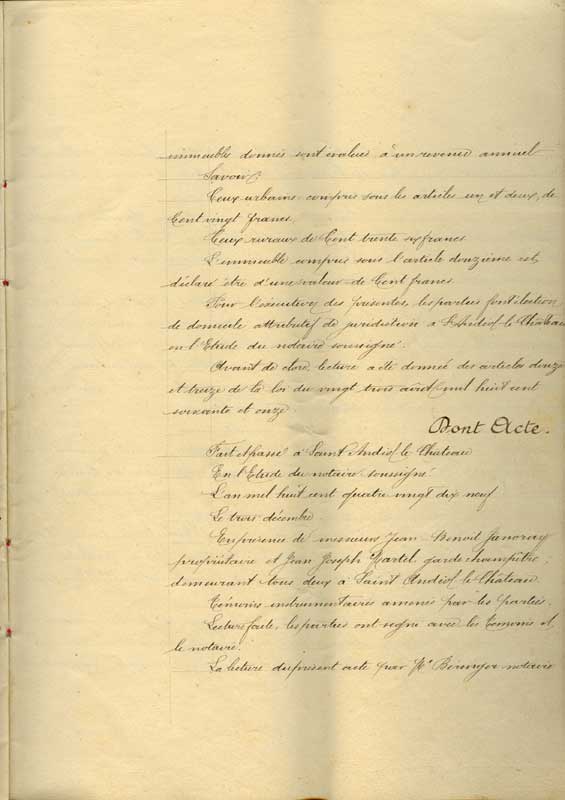 immeubles donnés sont évalués à un revenu annuel
Savoir:
Ceux urbains compris sous les articles un et deux, de
Cent vingt francs.
Ceux ruraux de Cent trente six francs
L'immeuble compris sous l'article douzième est,
déclaré être d'une valeur de Cent francs.
Pour l'exécution des présentes, les parties font élection
de domicile attributif de juridiction à St Andéol le Château
en l'Etude du notaire soussigné.
Avant de clore, lecture a été donnée des articles douze
et treize de la loi du vingt trois août mil huit cent
soixante et onze.
Dont Acte.
Fait et passé à Saint Andéol le Château
En l'Etude du notaire soussigné
L'an mil huit cent quatre vingt dix neuf
Le trois décembre.
En présence de messieurs Jean Benoit
propriétaire et Jean Joseph Martel, garde champêtre,
demeurant tous deux à Saint Andéol le Château.
Témoins instrumentaires amenés par les parties.
Lecture faite, les parties ont signé avec les témoins et
le notaire.
La lecture du présent acte par Me Bérenger notaire